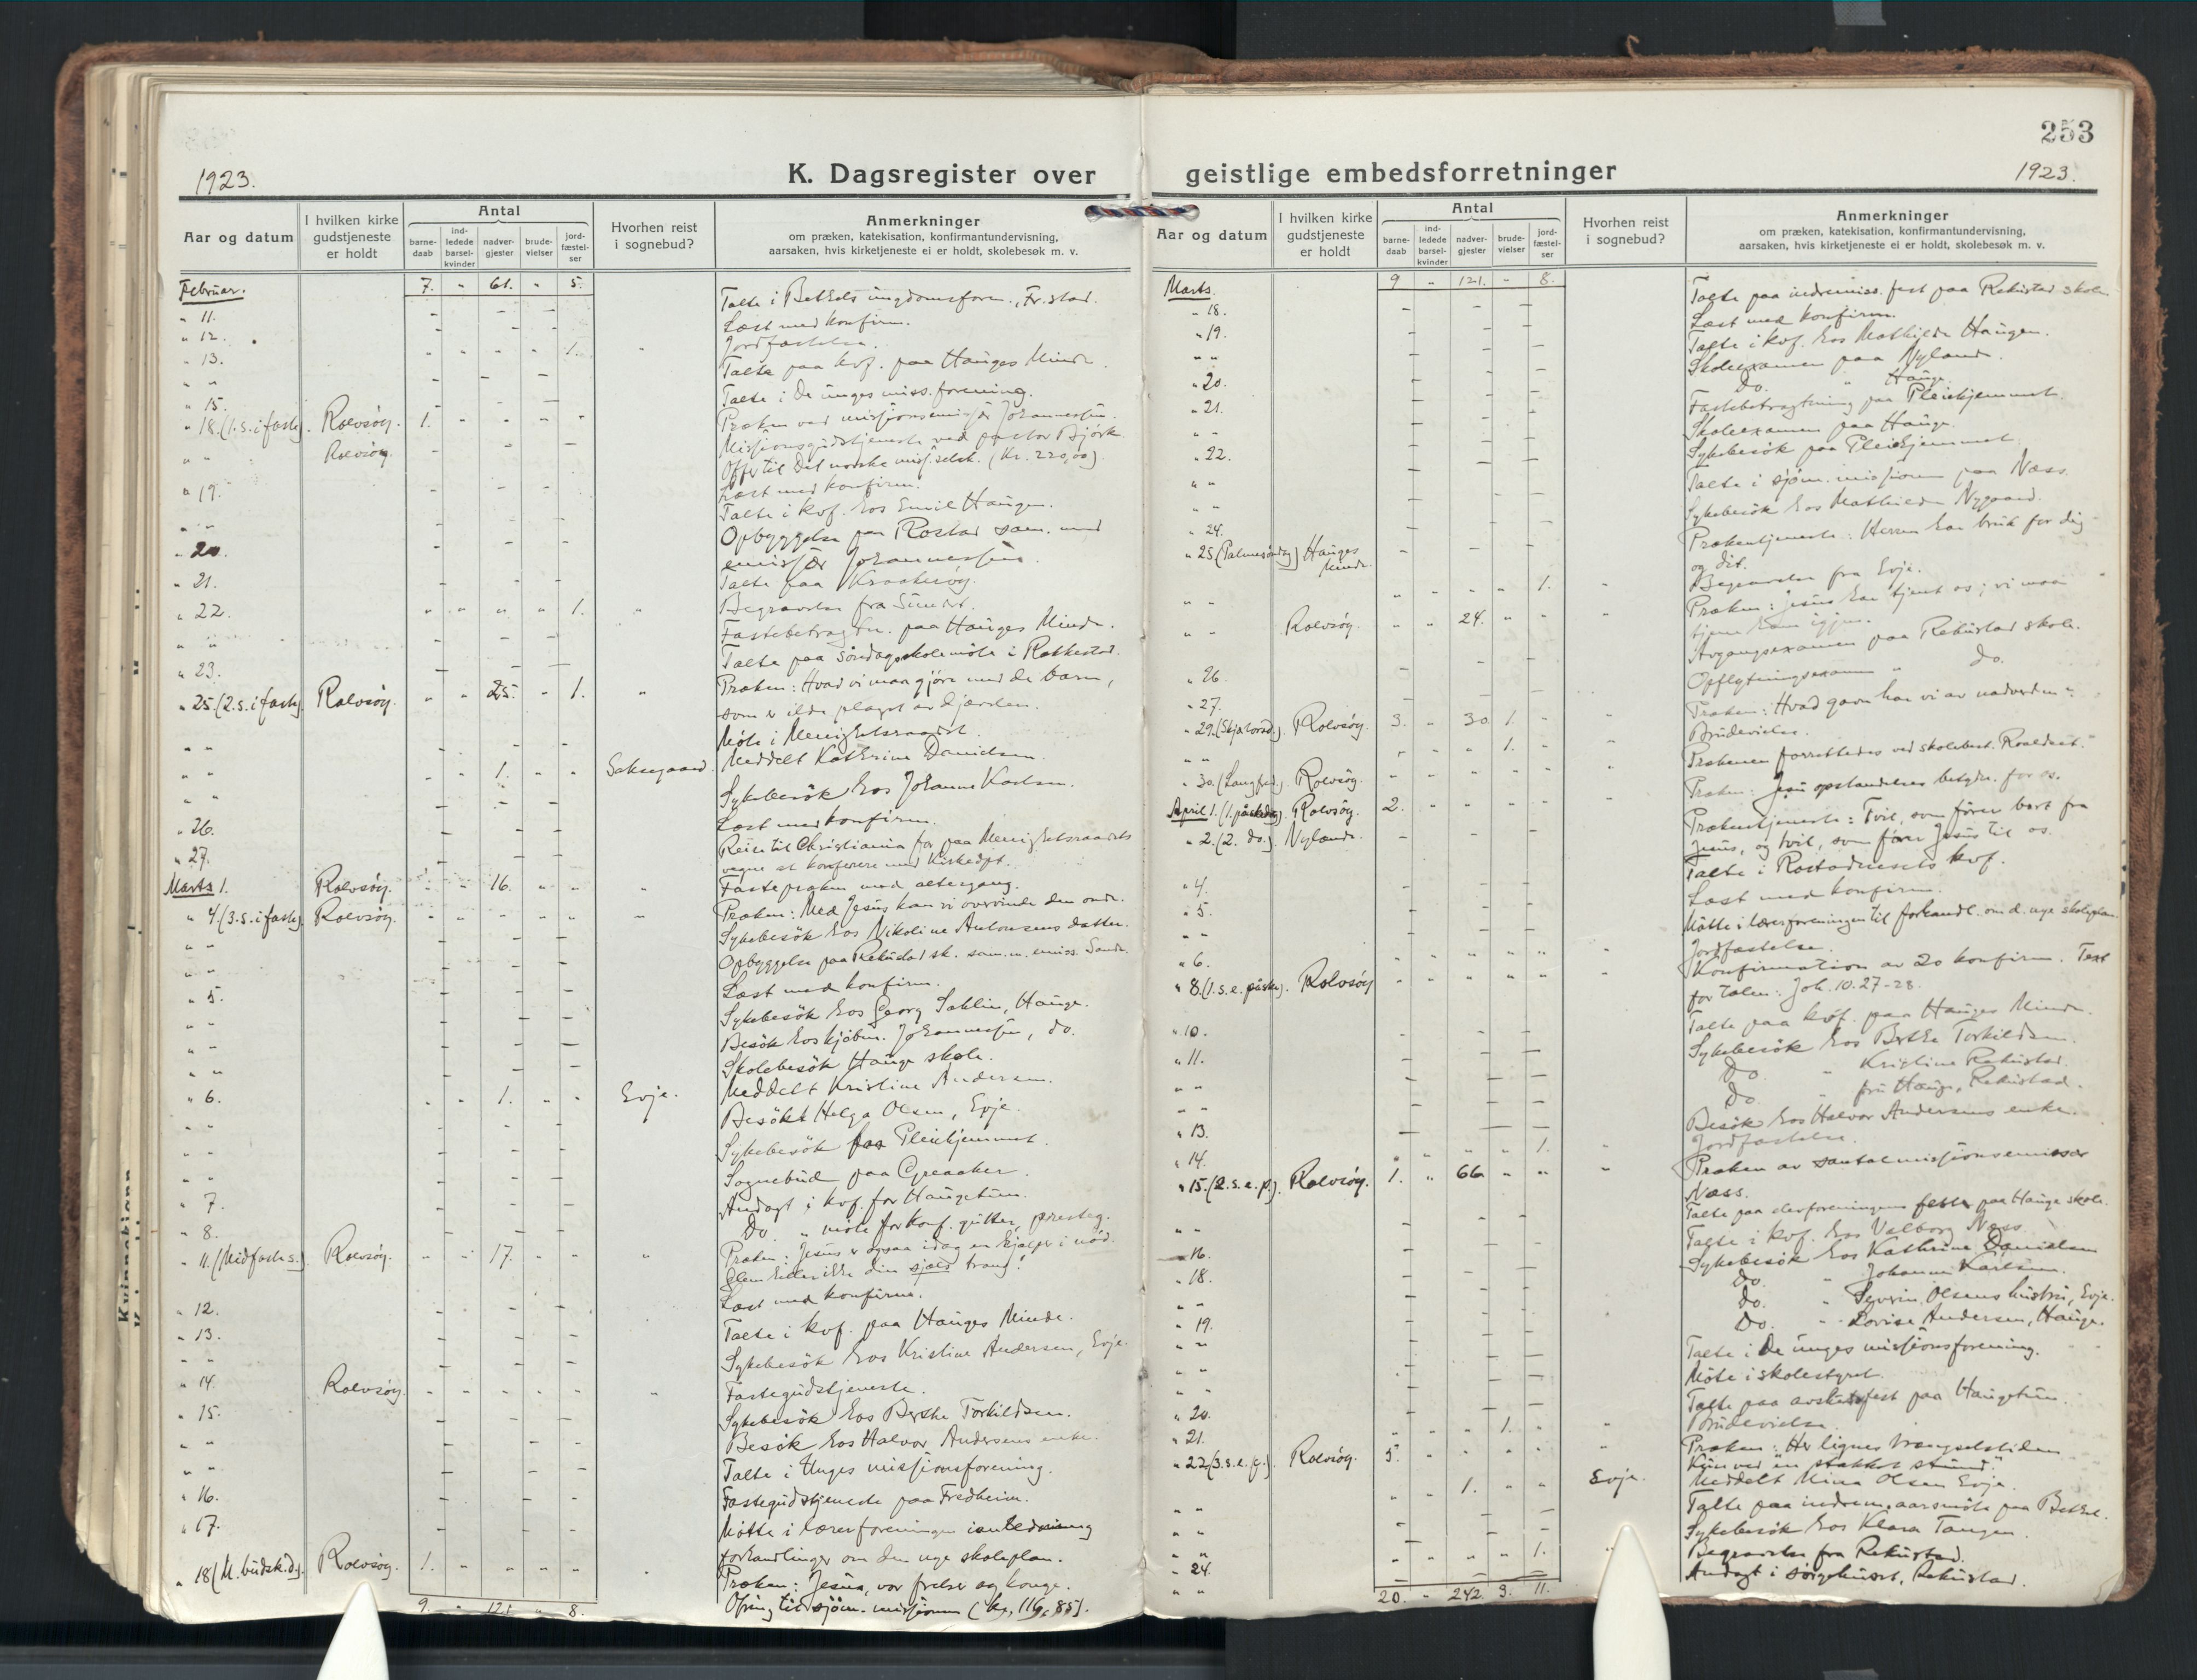 253
1923.
K. Dagsregister over
Aar og datum
I hvilken kirke gudstjeneste er holdt
Antal
barne-daab
ind-ledede barsel-kvinder
nadver-gjester
brude-vielser
jord-fæstel-ser
Hvorhen reist i sognebud?
Anmerkninger
om præken, katekisation, konfirmantundervisning,
aarsaken, hvis kirketjeneste ei er holdt, skolebesøk m. v.
Februar. 7. " 61. " 5.
" 11. Talte i Bethels ungdomsforen., Fr.stad.
" 12. Læst med konfirm.
" 13. " " " " 1. " Jordfæstelse.
" " Talte paa kvf. paa Hauges Minde.
" 15. Talte i De unges miss.forening.
" 18.(1.s.i faste). Rolvsøy. 1. " " " " Præken ved missionsemissær Johannessen.
" " Rolvsøy. Missionsgudstjeneste ved pastor Bjørk.
Offer til Det norske miss.selsk. (Kr. 220,00).
" 19. Læst med konfirm.
" " Talte i kvf. hos Emil Haugen.
" 20. Opbyggelse paa Rostad sam. med
emissær Johannessen.
" 21. Talte paa Kraakerøy.
" 22. " " " " 1. " Begravelse fra
" " Fastebetragtn. paa Hauges Minde.
" 23. Talte paa søndagsskolemøte i Rakkestad.
" 25.(2.s.i faste). Rolvsøy. " " 25. " 1. " Præken: Hvad vi maa gjøre med de barn,
som er ilde plaget av djævelen.
" " Møte i Menighetsraadet.
" " " " 1. " " Saksegaard. Meddelt Kathrine Danielsen.
" " Sykebesøk hos Johanne Karlsen.
" 26. Læst med konfirm.
" 27. Reise til Christiania for paa Menighetsraadets
vegne at konferere med Kirkedpt.
Marts 1. Rolvsøy. " " 16. " " " Fastepræken med altergang.
" 4.(3.s.i faste). Rolvsøy. " " " " " " Præken: Med Jesus kan vi overvinde den onde.
" " Sykebesøk hos Nikoline Antonsens datter.
" " Opbyggelse paa Rekustad sk. sam. m. emiss. Sande.
" 5. Læst med konfirm.
" " Sykebesøk hos Georg Sahlin, Hauge.
" " Besøk hos kjøbm. Johannessen, do.
" " Skolebesøk Hauge skole.
" 6. " " 1. " " Evje. Meddelt Kristine Andersen.
" " Besøkt Helga Olsen, Evje.
" " Sykebesøk paa Pleiehjemmet.
" " Sognebud paa Greaaker.
" 7. Andagt i kvf. for Haugetun.
" 8. Do. " møte for konf. gutter, presteg.
" 11.(Midfastes.) Rolvsøy. " " 17. " " " Præken: Jesus er ogsaa idag en hjælper i nød.
Glem heller ikke din sjæls trang!
" 12. Læst med konfirm.
" 13. Talte i kvf. paa Hauges Minde.
" " Sykebesøk hos Kristine Andersen, Evje.
" 14. Rolvsøy. " " " " " " Fastegudstjeneste.
" 15. Sykebesøk hos Berthe Torkildsen.
" " Besøk hos Halvor Andersens enke.
" " Talte i Unges missionsforening.
" 16. Fastegudstjeneste paa Fredheim.
" 17. Møtte i lærerforeningen i anledning
forhandlinger om den nye skoleplan.
" 18(M. budsk.d.). Rolvsøy. 1. " " " " " Præken: Jesus, vor frelser og konge.
Ofring til sjøm.missionen (kr. 116,85).
9. " 121. " 8.
geistlige embedsforretninger
1923.
Aar og datum
I hvilken kirke gudstjeneste er holdt
Antal
barne-daab
ind-ledede barsel-kvinder
nadver-gjester
brude-vielser
jord-fæstel-ser
Hvorhen reist i sognebud?
Anmerkninger
om præken, katekisation, konfirmantundervisning,
aarsaken, hvis kirketjeneste ei er holdt, skolebesøk m. v.
Marts. 9 " 121. " 8.
" 18. Talte paa indremiss.fest paa Rekustad skole.
" 19. Læst med konfirm.
" " Talte i kvf. hos Mathilde Haugen.
" 20. Skoleexamen paa Nyland.
" 21. Do. " Hauge.
" " Fastebetragtning paa Pleiehjemmet.
" 22. Skoleexamen paa Hauge.
" " Sykebesøk paa Pleiehjemmet.
" " Talte i sjøm.missionen paa Næss.
" 24. Sykebesøk hos Mathilde Nygaard.
" 25.(Palmesøndag) Hauges Minde. Prækentjeneste: Herren har bruk for dig
og dit.
" " " " " " 1. " Begravelse fra Evje.
" " Rolvsøy. " " 24. " " " Præken: Jesus har tjent os; vi maa
tjene ham igjen.
" 26. Avgangsexamen paa Rekustad skole.
" 27. Opflytningsexamen " do.
" 29.(Skjærtorsd.). Rolvsøy. 3. " 30. 1. " " Præken: Hvad gavn har vi av nadverden?
" " " " " 1. " " Brudevielse.
" 30.(Langfred.). Rolvsøy. " " " " " " Prækenen forrettedes ved skolebest. Roaldset.
April 1. (1. påskedag). Rolvsøy. 2. " " " " " Præken: Jesu opstandelses betydn. for os.
" 2.(2. do.). Nyland. Prækentjeneste: Tvil, som fører bort fra
Jesus, og tvil, som fører Jesus til os.
" 4. Talte i Rostadnesets kvf.
" 5. Læst med konfirm.
" " Møtte i lærerforeningen til forhandl. om d. nye skoleplan.
" 6. " " " " " " Jordfæstelse.
" 8.(1.s.e.påske). Rolvsøy " " " " " " Konfirmation av 20 konfirm. Text
for talen: Joh. 10. 27-28.
" 10. Talte paa kvf. paa Hauges Minde.
" 11. Sykebesøk hos Berthe Torkildsen.
" " Do " Kristine Rekustad.
" " Do. " fru Hauge, Rekustad.
" 13. Besøk hos Halvor Andersens enke.
" 14. " " " " 1. " Jordfæstelse.
" 15.(2.s.e.p.). Rolvsøy. 1. " 66 " " " Præken av santalmissionsemissær
Næss.
" " Talte paa elevforeningens fest paa Hauge skole.
" 16. Talte i kvf. hos Valborg Næss.
" 18. Sykebesøk hos Kathrine Danielsen
" " Do. " Johanne Karlsen.
" 19. Do. " Severin Olsens hustru, Evje.
" " Do. " Lovise Andersen, Hauge.
" " Talte i De unges missionsforening.
" " Møte i skolestyret.
" 20. Talte paa avskedsfest paa Haugetun.
" 21. " " " 1. " " Brudevielse.
" 22(3.s.e.p.). Rolvsøy. 5. " " " " " Præken: Her lignes trængselstiden
kun ved en stakket stund."
" " " " 1. " " Evje. Meddelt Mina Olsen Evje.
" " Talte paa indrem. aarsmøte paa Bethel.
" " Sykebesøk hos Klara Tangen.
" 24. " " " " 1. " Begravelse fra Rekustad.
" " Andagt i sørgehuset, Rekustad.
20. " 242. 3. 11.